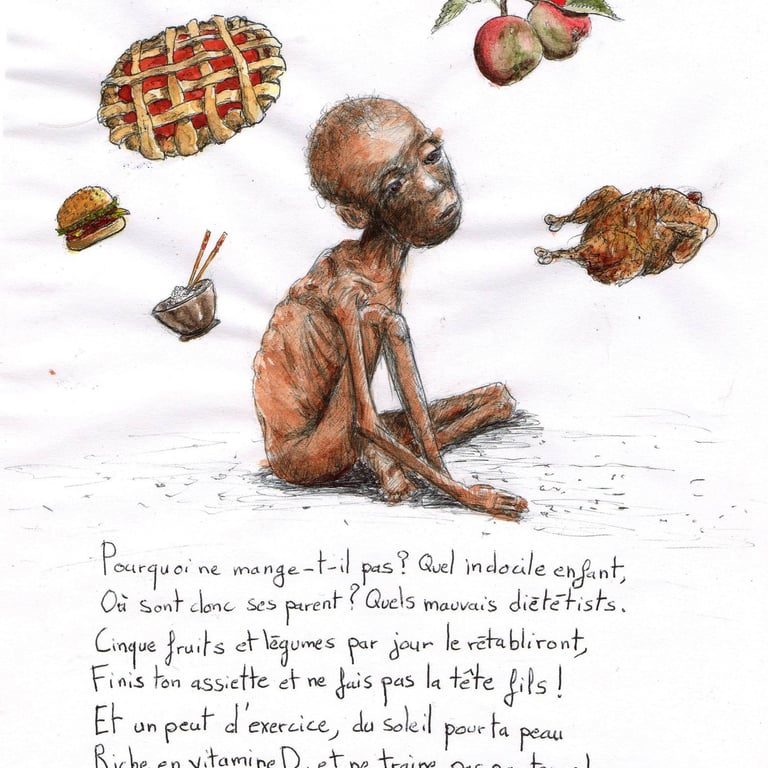 Pourquoi ne mange-t-il pas? Quel indocile enfant,
Où sont donc ses parent? Quels mauvais diététists.
Cinque fruits et légumes par jour le rétabliront,
Finis ton assiette et ne fais pas la tête fils!
Et un peut d'exercice, du soleil pour ta peau
Riche en vitamine D, et ne traine pas